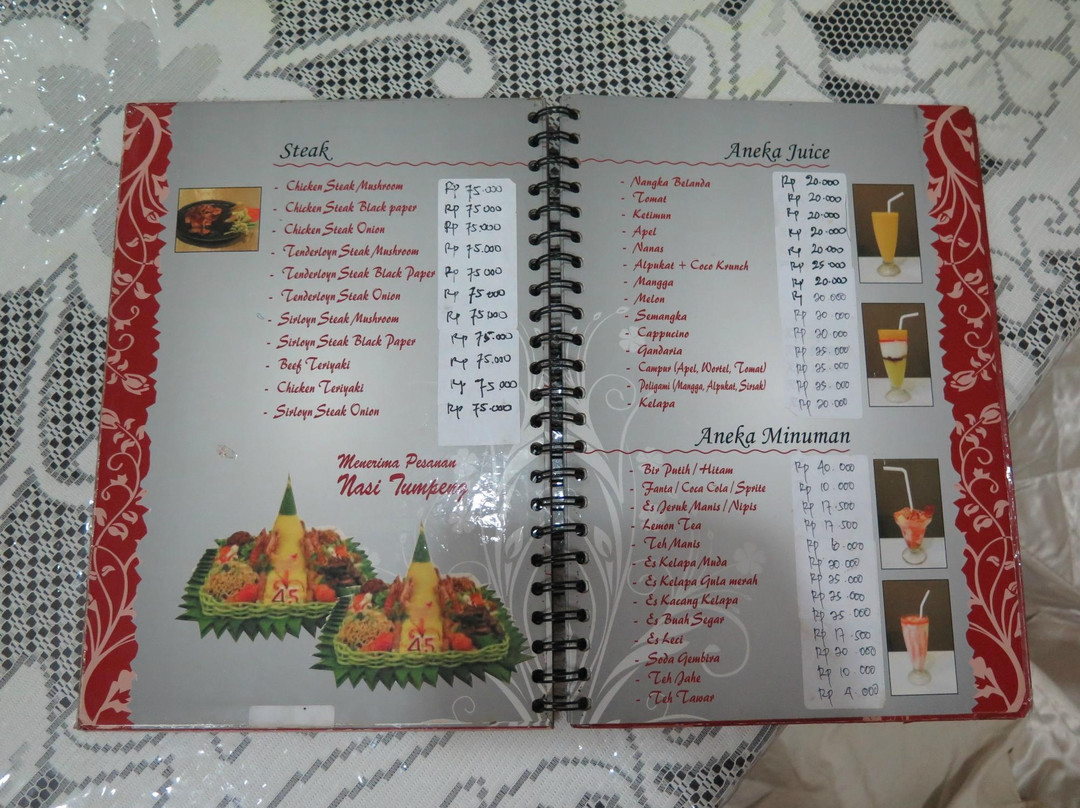 Steak
- Chicken Steak Mushroom Rp 75.000
- Chicken Steak Black paper Rp 75.000
- Chicken Steak Onion Rp 75.000
- Tenderloyn Steak Mushroom Rp 75.000
- Tenderloyn Steak Black Paper Rp 75.000
- Tenderloyn Steak Onion Rp 75.000
- Sirloyn Steak Mushroom Rp 75.000
- Sirloyn Steak Black Paper Rp 75.000
- Beef Teriyaki Rp 75.000
- Chicken Teriyaki Rp 75.000
- Sirloyn Steak Onion Rp 75.000
Menerima Pesanan
Nasi Tumpeng
45
45
Aneka Juice
- Nangka Belanda Rp 20.000
- Tomat Rp 20.000
- Ketimun Rp 20.000
- Apel Rp 20.000
- Nanas Rp 20.000
- Alpukat + Coco Krunch Rp 25.000
- Mangga Rp 20.000
- Melon Rp 20.000
- Semangka Rp 20.000
- Cappucino Rp 20.000
- Gandaria Rp 25.000
- Campur (Apel, Wortel, Tomat) Rp 25.000
- Poligami (Mangga, Alpukat, Sirsak) Rp 25.000
- Kelapa Rp 20.000
Aneka Minuman
- Bir Putih / Hitam Rp 40.000
- Fanta / Coca Cola / Sprite Rp 10.000
- Es Jeruk Manis / Nipis Rp 17.500
- Lemon Tea Rp 17.500
- Teh Manis Rp 6.000
- Es Kelapa Muda Rp 20.000
- Es Kelapa Gula merah Rp 25.000
- Es Kacang Kelapa Rp 25.000
- Es Buah Segar Rp 25.000
- Es Leci Rp 17.500
- Soda Gembira Rp 20.000
- Teh Jahe Rp 10.000
- Teh Tawar Rp 4.000